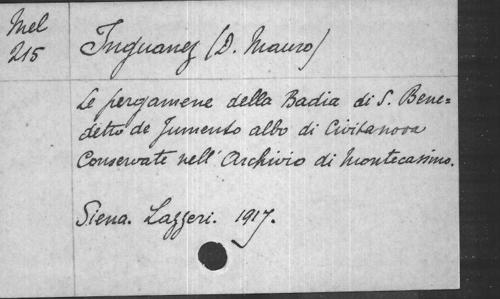 Mel
215
Inguanez (D. Mauro)
Le pergamene della Badia di S. Bene=
detto de Jumento albo di Civitanova
Conservate nell' Archivio di Montecassino.
Siena. Lazzeri. 1917.